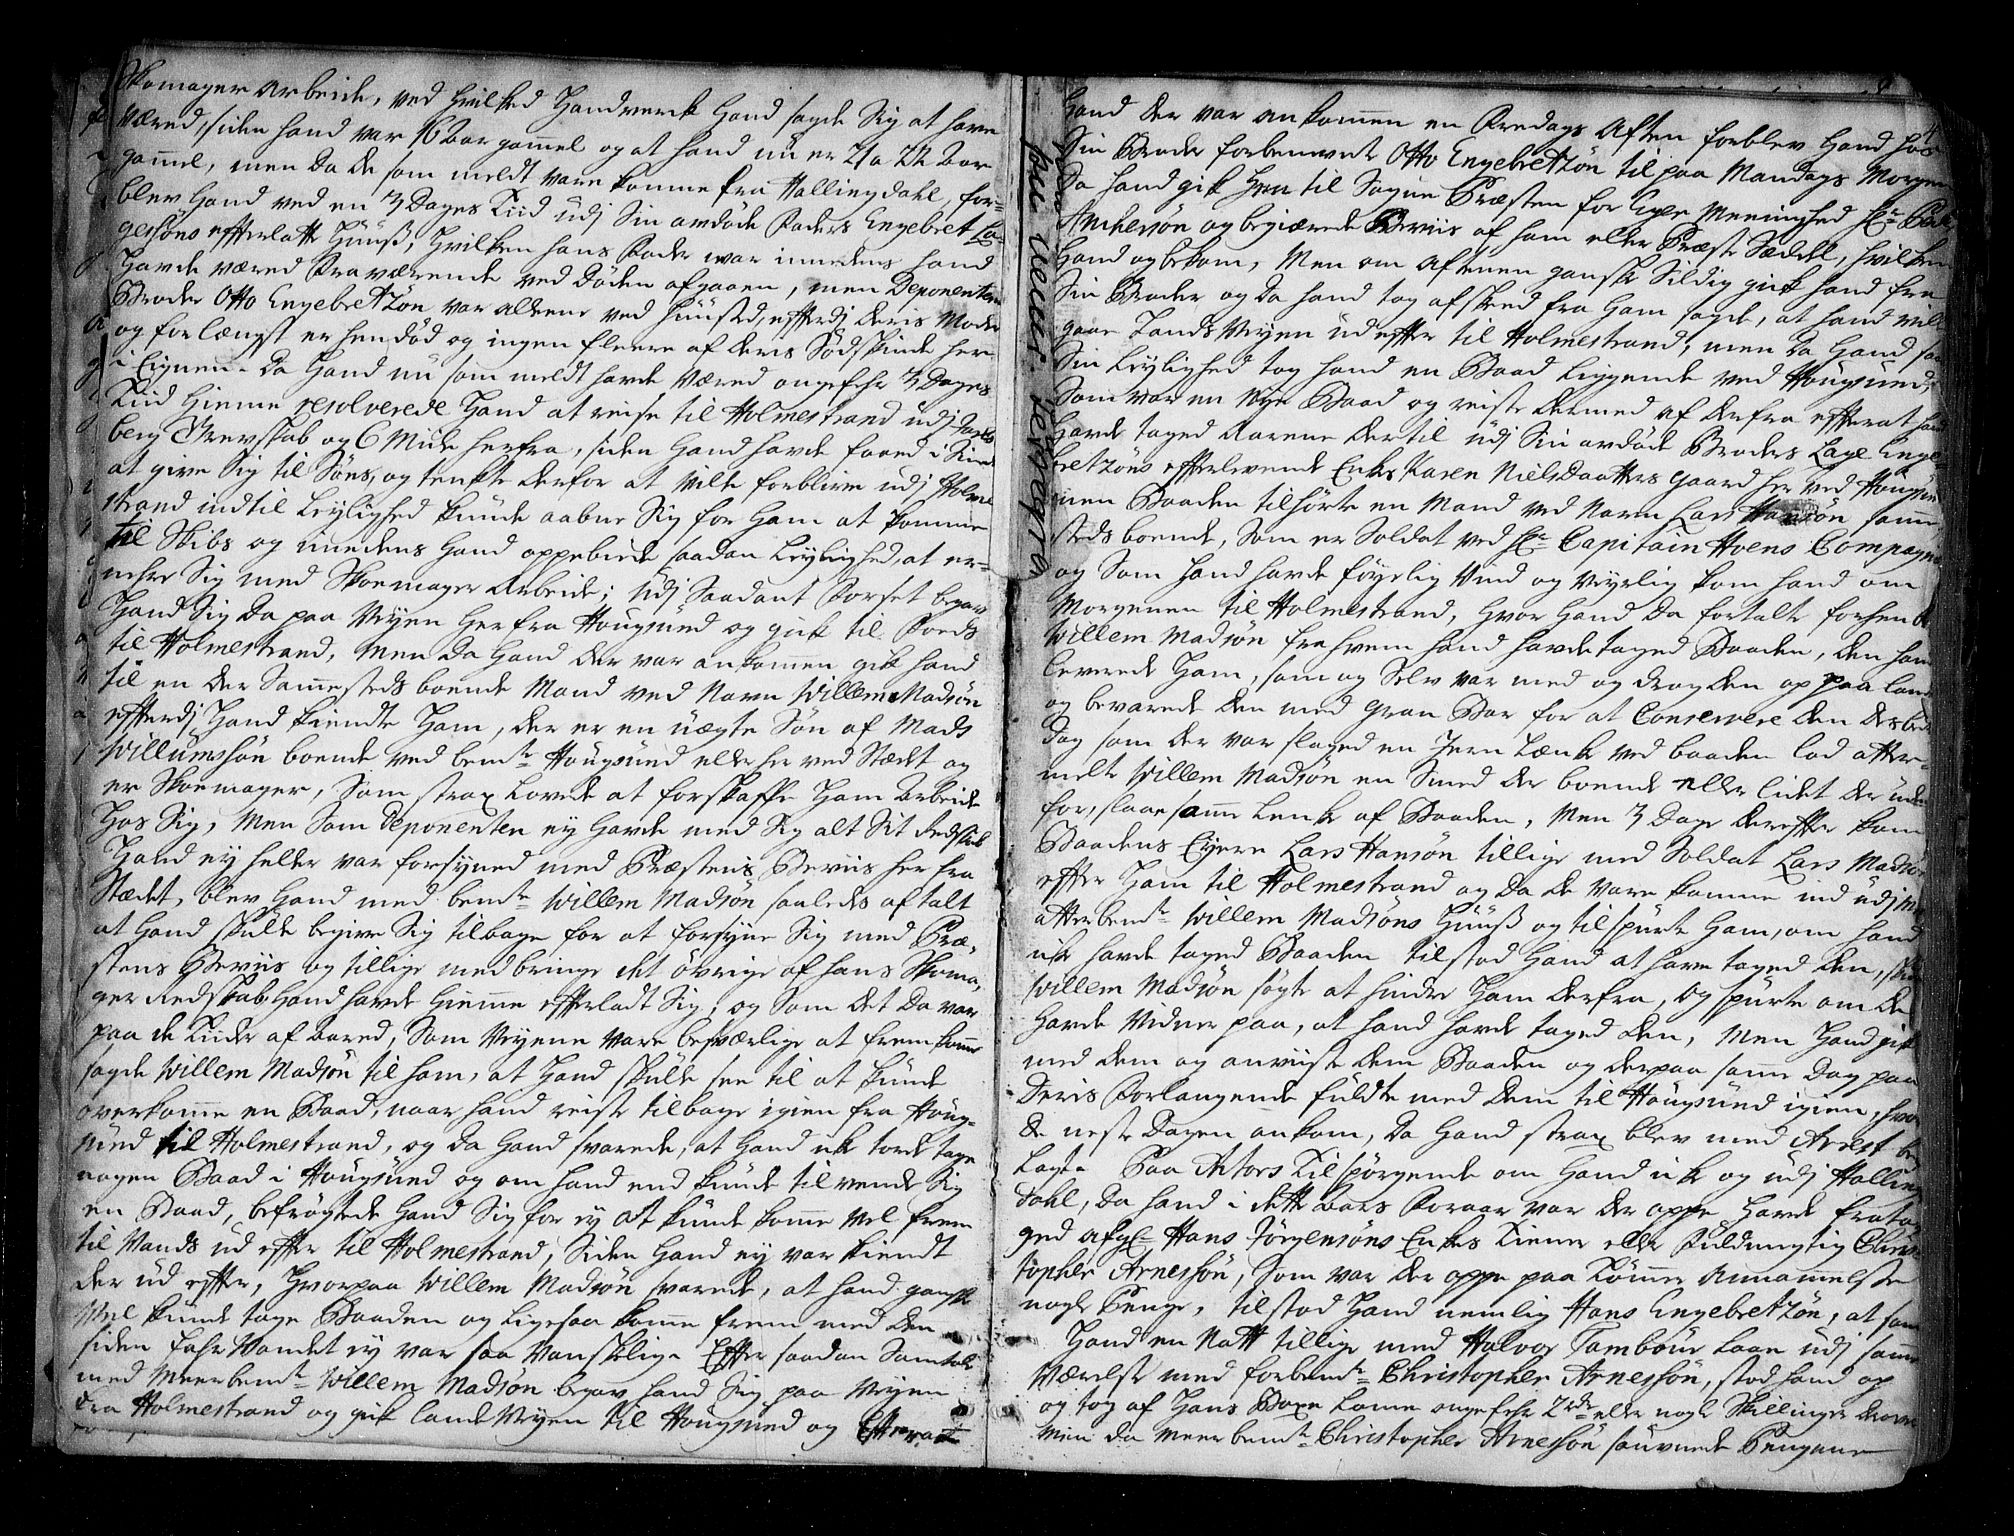 Skomager Arbeide, ved hvilked Handverk Hand sagde Sig at have
Været, siden hand var 16 aar gammel og at hand nu er 21 a 22 Aar
gammel, men da de som meldt vare komne fra Hallingdahl, for-
blev Hand ved en 3 Dages Tiid udj Sin avdøde Faders Engebret La-
gesøns efterlatte Huuß, hvilken hans Fader war imedens hand
havde været fraværende ved Døden afgaaen, men Deponentens
Broder Otto Engebretzøn var alleene ved Huused, efterdj deris Moder
og for længst er hendød og ingen fleere af deris Sødskinde her
i Eignen. Da Hand nu som meldt havde været ongefehr 3 Dages
Tiid hieme resolverede Hand at reise til Holmestrand udj Jarls
berg Grevskab og 6 Mile herfra, siden Hand havde faaed i Sinde
at give Sig til Søes, og tenkte derfor at vilde forblive udj Holme
strand indtil Leylighed kunde aabne Sig for Ham at komme
til Skibs og imedens Hand oppebiede saadan Leylighed, at er-
nehre Sig med Skoemager Arbeide; Udj Saadant Forset begav
Hand Sig da paa Veyen her fra Hougsund og gik til Foeds
til Holmestrand, Men da Hand der var ankommen gik hand
til en der Sammesteds boende Mand ved Navn Willem Madsøn
efterdj Hand kiendte Ham, der er en uægte Søn af Mads
Willumssøn boende ved bemte Hougsund eller her ved Stædet og
er Skoemager, Som strax lovede at forskaffe Ham Arbeide
Hos Sig, Men Som Deponenten ey havde med Sig alt Sit Redskab
Hand ey heller var forsyned med Præstens Beviis her fra
Stædet, blev Hand med bemte Willem Madsøn saaledes aftalt
at Hand skulde begive Sig tilbage for at forsyne Sig med Præ-
stens Beviis og tillige medbringe det øvrige af hans Skoma-
ger Redskab, Hand havde hiemme efterladt Sig, og Som det da var
paa de Tiider af Aared, Som Veyene vare besværlige at fremkomme
sagde Willem Madsøn til ham, at Hand skulde see til at kunde
overkomme en Baad, naar hand reiste tilbage igien fra Houg-
sund til Holmestrand, og da Hand svarede, at Hand ike torde tage
nogen Baad i Hougsund og om hand end kunde tilvende Sig
en Baad, befrøgtede Hand Sig for ey at kunde komme vel frem
til Vands ud efter til Holmestrand, Siden Hand ey var kiendt
der ud efter, Hvorpaa Willem Madsøn svarede, at hand ganske
vel kunde tage Baaden og ligesaa komme frem med den
siden fahrvandet ey var saa vanskelig. Efter saadan Samtale
med Meerbemte Willem Madsøn begav hand Sig paa Veyen
fra Holmestrand og gik lande Veyen til Hougsund og Efterat
4
Hand der var ankommen en Fredags Aften forblev Hand hos
Sin Broder forbenevnte Otto Engebretzøn til paa Mandags Morgen
da hand gik hen til Sogne Præsten for Eger Meenighed Hr
Anchersøn og begiærede Beviis af ham eller Præste Sæddel, hvilken
Hand og bekom, Men om Aftenen ganske Sildig gik hand fra
Sin Broder og da hand tog afsked fra Ham sagde, at hand vilde
gaae Lands Veyen ud efter til Holmestrand, men da Hand saa
Sin Leylighed tog hand en Baad Liggende ved Hougsund,
Som var en Nye Baad og reiste dermed af derfra efterat hand
havde taged Aarene dertil udj Sin avdøde Broders Lage Enge
bretzøns efterlevende Enkes Karen NielsDaatters Gaard her ved Hougsun
men Baaden tilhørte en Mand ved Navn Lars Hansøn samme
steds boende, Som er Soldat ved Hr Capitain Hoens Compagnie
og Som Hand havde føyelig Vind og Veyrlig kom hand om
Morgenen til Holmestrand, hvor Hand da fortalte forhen
Willem Madsøn fra hvem hand havde taged Baaden, den han
leverede Ham, som og Selv var med og drog den op paa Land
og bevarede den med Gran Bar for at Conservere den
dog som der var slaged en Jern Lænke ved baaden lod atter-
melte Willem Madsøn en Smed der boende eller lidet der uden
for, slaae samme Lenke af Baaden, Men 3 Dage derefter kom
Baadens Eyere Lars Hansøn tillige med Soldat Lars Madsøn
efter Ham til Holmestrand og da de vare komne ind udj
atterbemte Willem Madsøns Huuß og tilspurte Ham, om hand
ike havde taged Baaden tilstod Hand at have taged den,
Willem Madsøn søgte at hindre Ham derfra, og spurte om de
havde Vidner paa, at hand havde taged den, Men Hand gik
med dem og anviiste dem Baaden og derpaa samme Dag paa
Deris Forlangende fuldte med dem til Hougsund igien, hvor
de neste Dagen ankom, da Hand strax blev med Arrest be
lagt. Paa Actors Tilspørgende om Hand ike og udj Halling
dahl, da hand i dette Aars Foraar var der oppe havde frata
ged afgl. Hans Jørgensøns Enkes Tiener eller Fuldmegtig Chris
topher Arnessøn, Som var der oppe paa Tømmer Annammelse
nogle Penge, tilstod Hand nemlig Hans Engebretzøn, at som
Hand en Natt tillige med Halvor Tambour laae udj samme
Værelse med forbemte Christopher Arnessøn, stod hand op
og tog af Hans Boxe Lomme ongefehr 2 rdr eller nogle Skillinger derover
Men da Meerbemte Christopher Arnessøn savnede Pengene